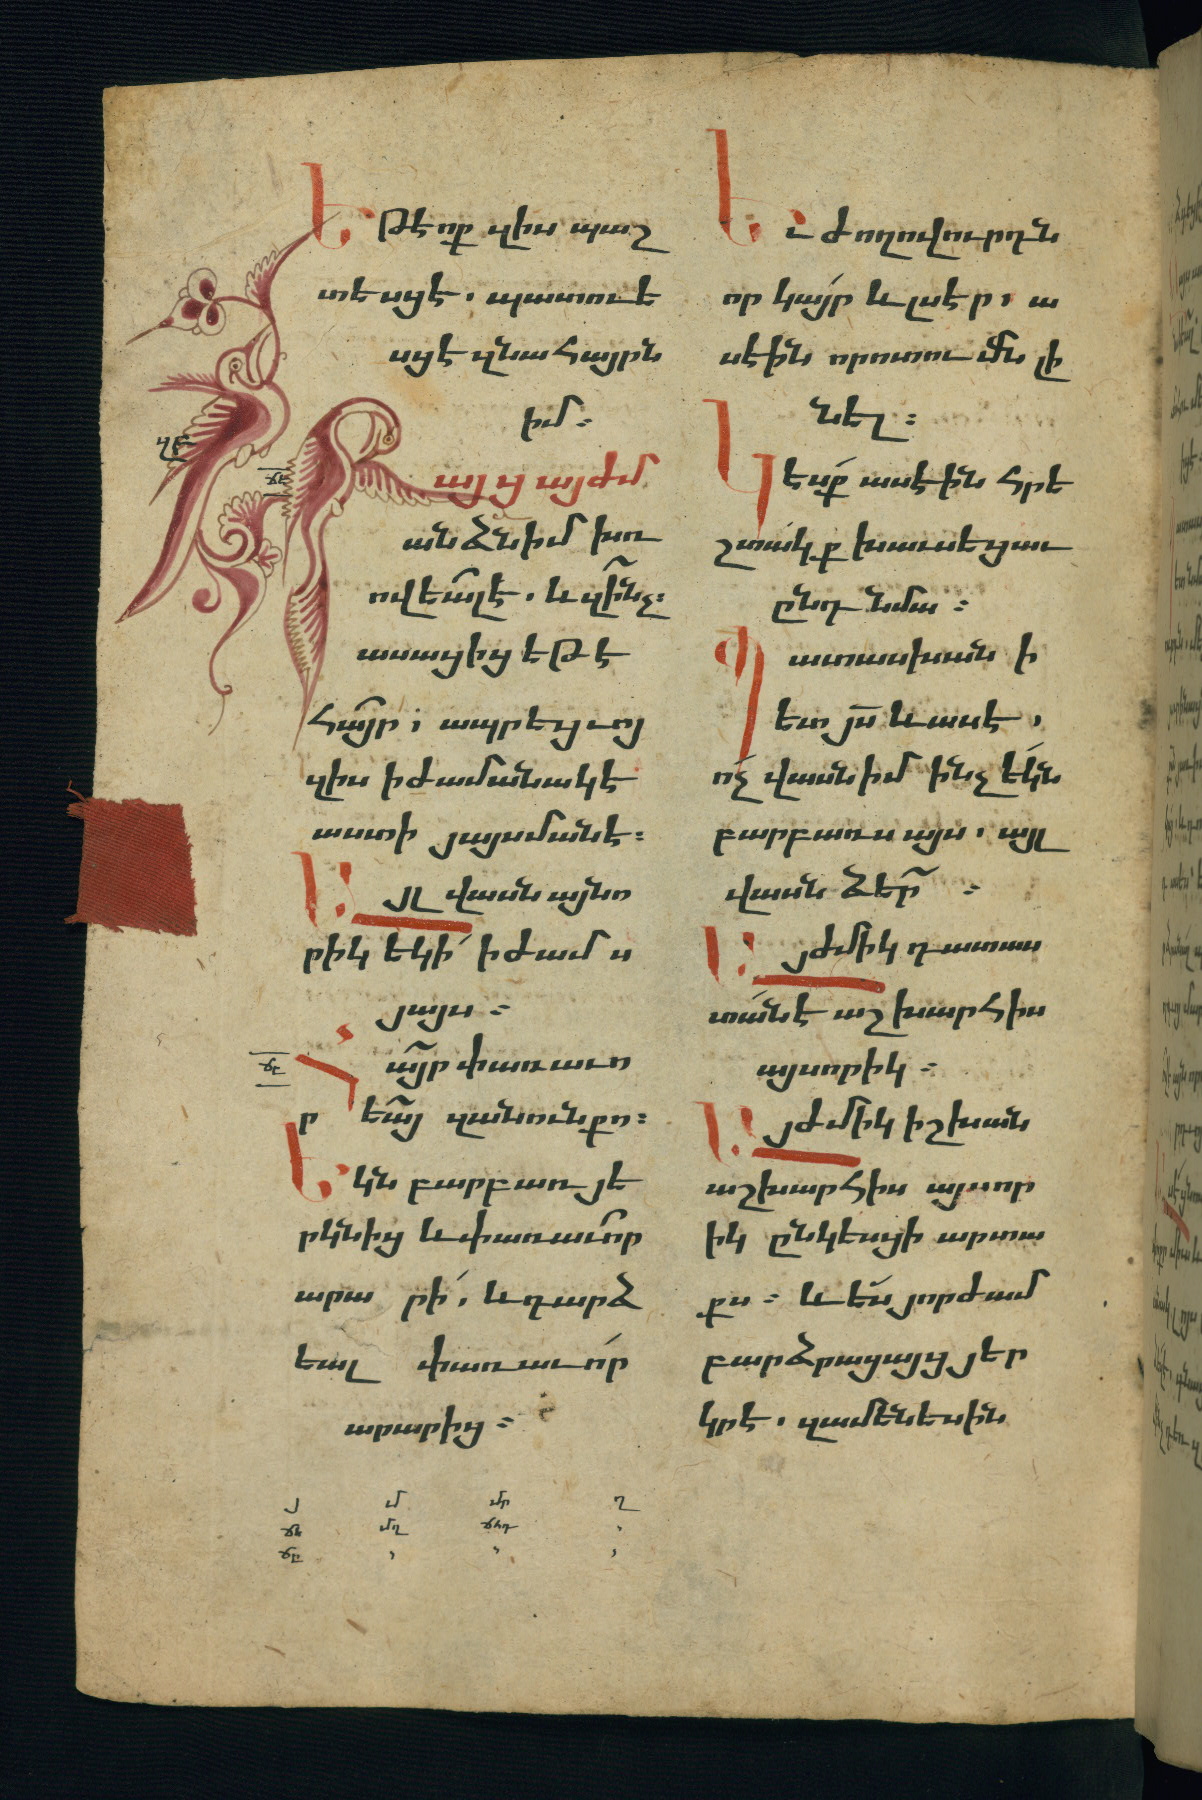 Ե թէ ոք զիս պաշ
տեսցէ, պատուե
սցէ զնա հայրն
իմ։
այց այժմ
անձնիմ խռ
ովեա՟լ է, և զի՟նչ։
ասացից եթէ
հա՟յր, ապրեցոյ
զիս ի ժամանակէ
աստի յայսմանէ։
Ա յլ վասն այնո
րիկ եկի՛ ի ժամ ս
յայս։
Հ ա՟յր փառաւո
ր եա՟յ զանուն քո։
Ե կն բարբառ յե
րկնից և փառաւո՛ր
արա րի՛, և դարձ
եալ փառաւո՛ր
արարից։
Ե ւ ժողովուրդն
որ կա՛յր և լսէր, ա
սէին որոտու մն լի
նել։
Կ էսք՛ ասէին հրե
շտա՛կ ք խաւսեցաւ
ընդ նմա։
Պ ատասխան ի
ետ յս՟ և ասէ,
ո՛չ վասն իմ ինչ է՛կն
բարբառս այս, այլ
վասն ձեր՟։
Ա յժմիկ դատաս
տա՛նէ աշխարհիս
այսորիկ։
Ա յժմիկ իշխան
աշխարհիս այսոր
իկ ընկեսցի արտա
քս։ և ե՛ս յորժամ
բարձրացայց յեր
կրէ, զամենեսին